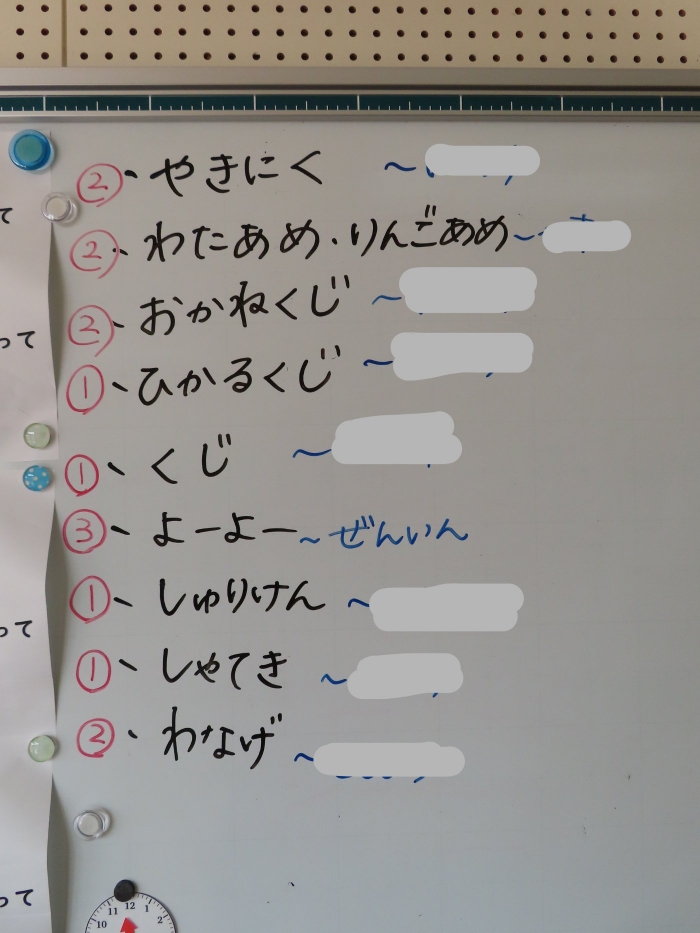 ②・やきにく ～
②・わたあめ・りんごあめ～
②・おかねくじ ～
①・ひかるくじ ～
①・くじ ～
③・よーよー～ぜんいん
①・しゅりけん ～
①・しゃてき ～
②・わなげ ～
て
って
って
って
10 11 12 1 2